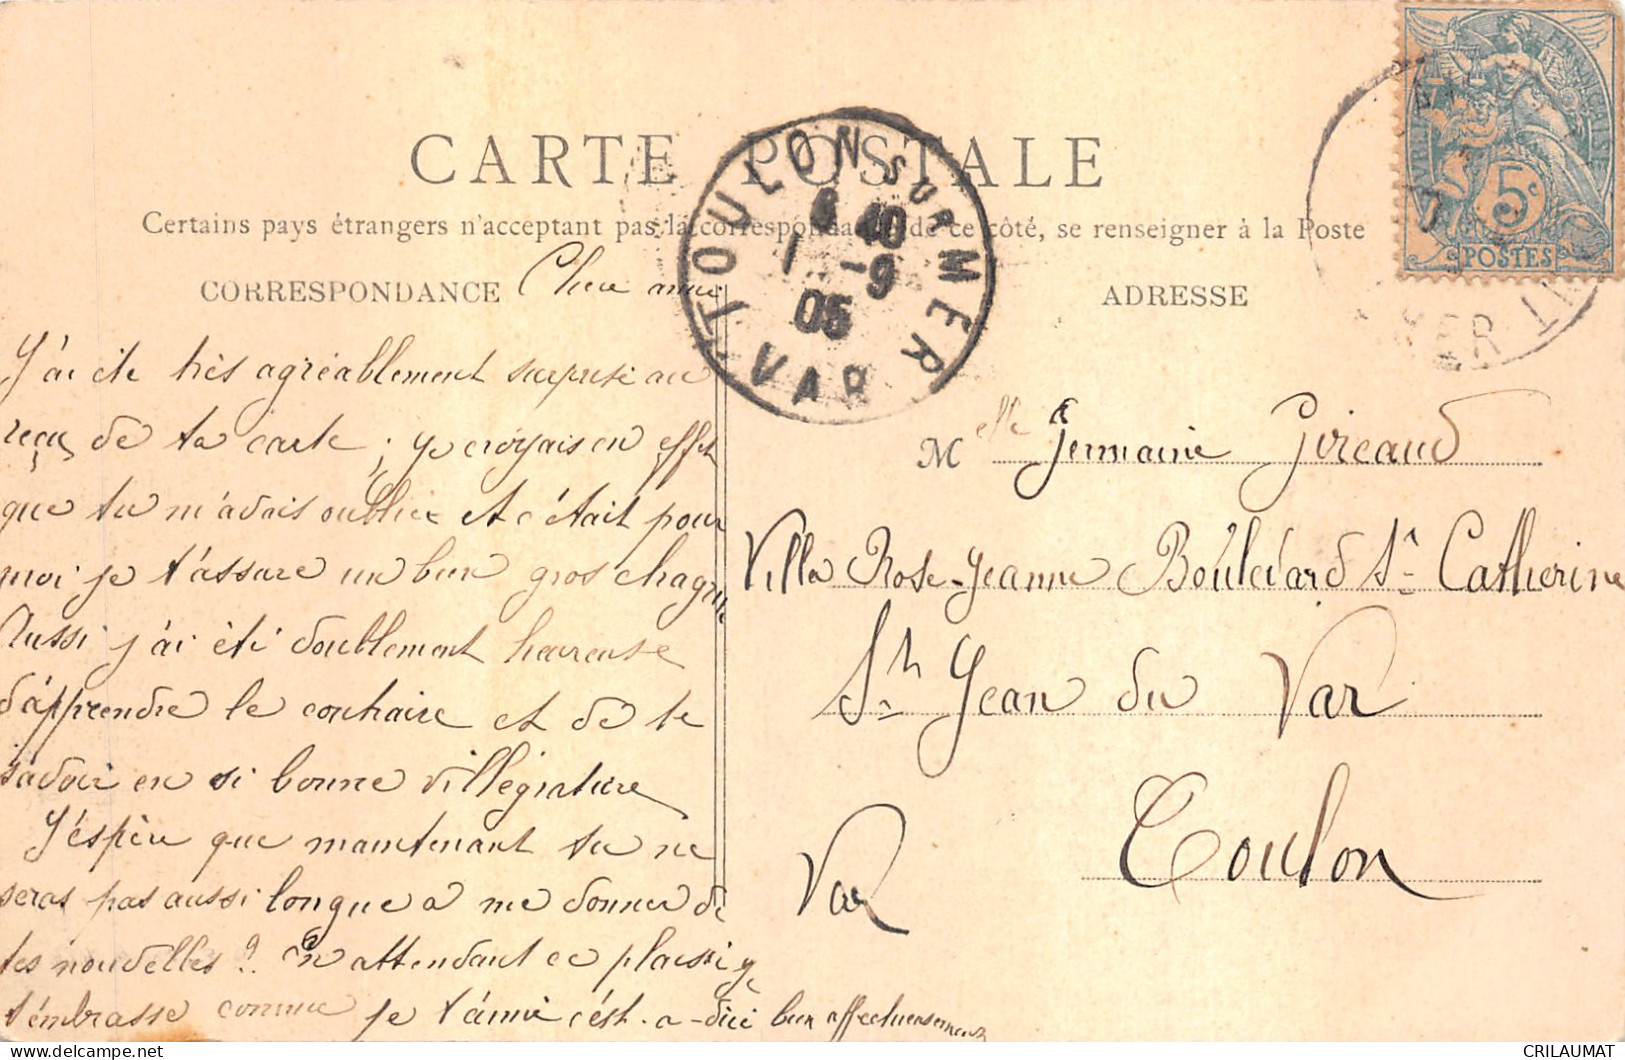 CARTE POSTALE
Certains pays étrangers n'acceptant pas la correspondance de ce côté, se renseigner à la Poste
CORRESPONDANCE
ADRESSE
TOULON SUR MER
6 40
1 -9
05
VAR
RÉPUBLIQUE FRANÇAISE
5c
POSTES
MER
Chère amie
J'ai été très agréablement surprise au
reçu de ta carte ; je croyais en effet
que tu m'avais oubliée et c'était pour
moi je t'assure un bien gros chagrin
Aussi j'ai été doublement heureuse
d'apprendre le contraire et de te
savoir en si bonne villégiature
J'espère que maintenant tu ne
seras pas aussi longue a me donner de
tes nouvelles ? En attendant ce plaisir je
t'embrasse comme je t'aime c'est-a-dire bien affectueusement
Melle Germaine Giraud
Villa Rose-Jeanne Boulevard Ste Catherine
St Jean du Var
Toulon
Var
CRILAUMAT